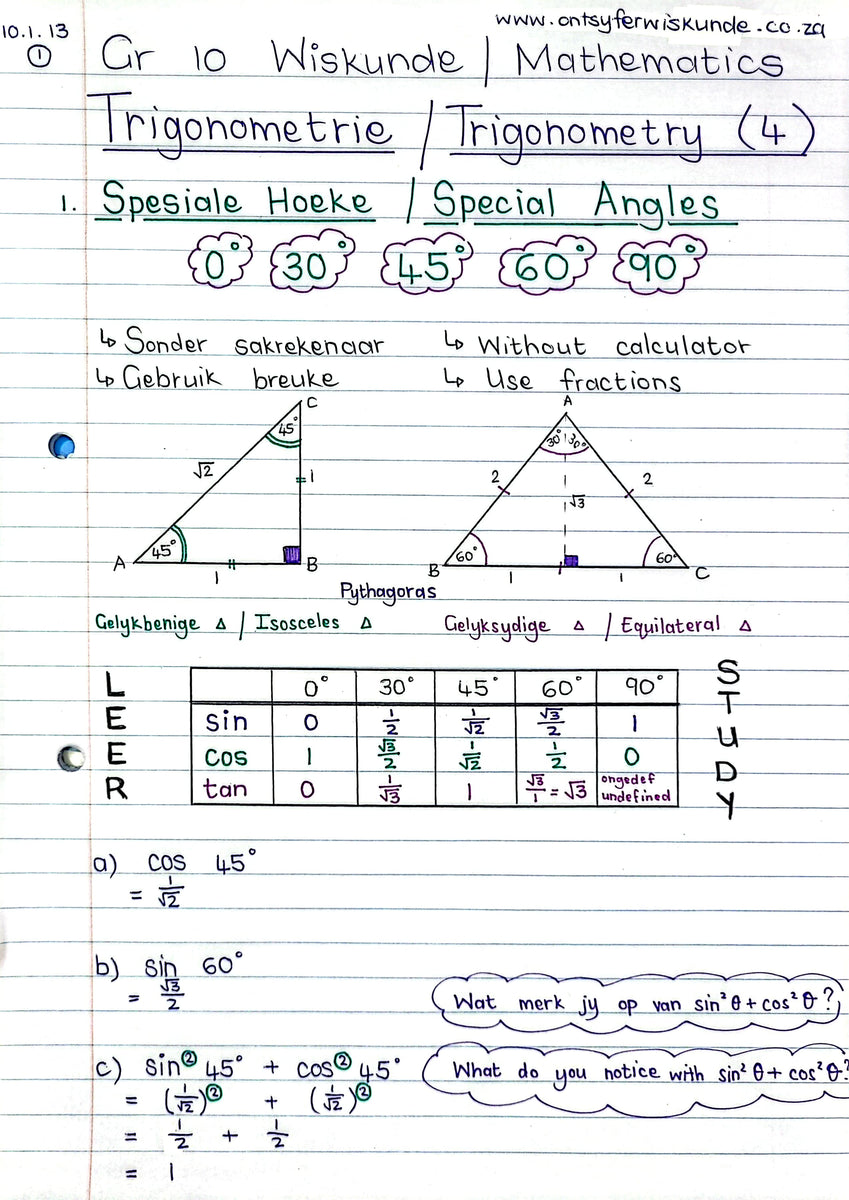 www.ontsyferwiskunde.co.za
10.1.13
①
Gr 10 Wiskunde | Mathematics
Trigonometrie / Trigonometry (4)
1. Spesiale Hoeke / Special Angles
0° 30° 45° 60° 90°
↳ Sonder sakrekenaar ↳ Without calculator
↳ Gebruik breuke ↳ Use fractions
C A
45° 30° 30°
√2 1 2 √3 2
A 45° B B 60° 60° C
1 1 1
Pythagoras
Gelykbenige △ / Isosceles △ Gelyksydige △ / Equilateral △
LEER
STUDY
0° 30° 45° 60° 90°
sin 0 1/2 1/√2 √3/2 1
cos 1 √3/2 1/√2 1/2 0
tan 0 1/√3 1 √3/1 = √3 ongedef undefined
a) cos 45°
= 1/√2
b) sin 60°
= √3/2
Wat merk jy op van sin²θ + cos²θ?
c) sin² 45° + cos² 45°
What do you notice with sin²θ + cos²θ?
= (1/√2)² + (1/√2)²
= 1/2 + 1/2
= 1